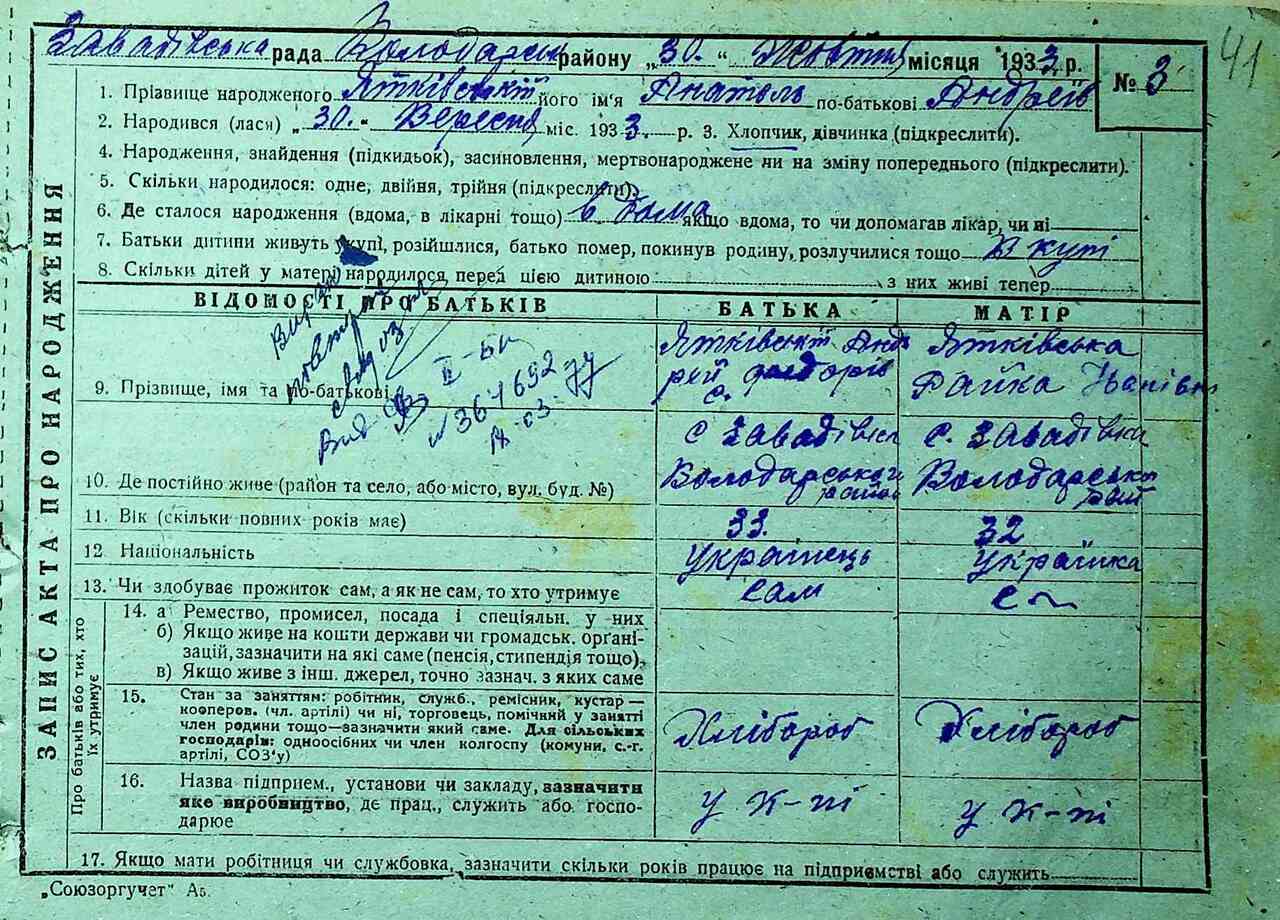 41
Завадівська рада Володарськ району „30.“ Жовтня місяця 1933 р.
№ 3
1. Прізвище народженого Ятківський його ім'я Анатоль по-батькові Андреїв
2. Народився (лася) „30.“ Вересня міс. 1933. р. 3. Хлопчик, дівчинка (підкреслити).
4. Народження, знайдення (підкидьок), засиновлення, мертвонароджене чи на зміну попереднього (підкреслити).
5. Скільки народилося: одне, двійня, трійня (підкреслити).
6. Де сталося народження (вдома, в лікарні тощо) в дома якщо вдома, то чи допомагав лікар, чи ні
7. Батьки дитини живуть вкупі, розійшлися, батько помер, покинув родину, розлучилися тощо В купі
8. Скільки дітей у матері народилося перед цією дитиною з них живі тепер
ЗАПИС АКТА ПРО НАРОДЖЕННЯ
ВІДОМОСТІ ПРО БАТЬКІВ БАТЬКА МАТІР
9. Прізвище, імя та по-батькові
Ятківський Анд
рей
Ятківська
Іванівн
Вид
II-БП
№ 364692
10. Де постійно живе (район та село, або місто, вул. буд. №)
с Завадівка
Володарського
с. Завадівка
Володарсько
11. Вік (скільки повних років має) 33. 32
12 Національність українець українка
13. Чи здобуває прожиток сам, а як не сам, то хто утримує сам
Про батьків або тих, хто
їх утримує
14. а Ремество, промисел, посада і спеціяльн. у них
б) Якщо живе на кошти держави чи громадськ. орґані-
зацій, зазначити на які саме (пенсія, стипендія тощо),
в) Якщо живе з інш. джерел, точно зазнач. з яких саме
15. Стан за заняттям: робітник, служб., ремісник, кустар —
кооперов. (чл. артілі) чи ні, торговець, помічний у занятті
член родини тощо—зазначити який саме. Для сільських
господарів: одноосібних чи член колгоспу (комуни, с.-г.
артілі, СОЗ'у)
Хлібороб Хлібороб
16. Назва підприєм., установи чи закладу, зазначити
яке виробництво, де прац., служить або госпо-
дарює
у к-пі у к-пі
17. Якщо мати робітниця чи службовка, зазначити скільки років працює на підприємстві або служить
„Союзоргучет“ А5.